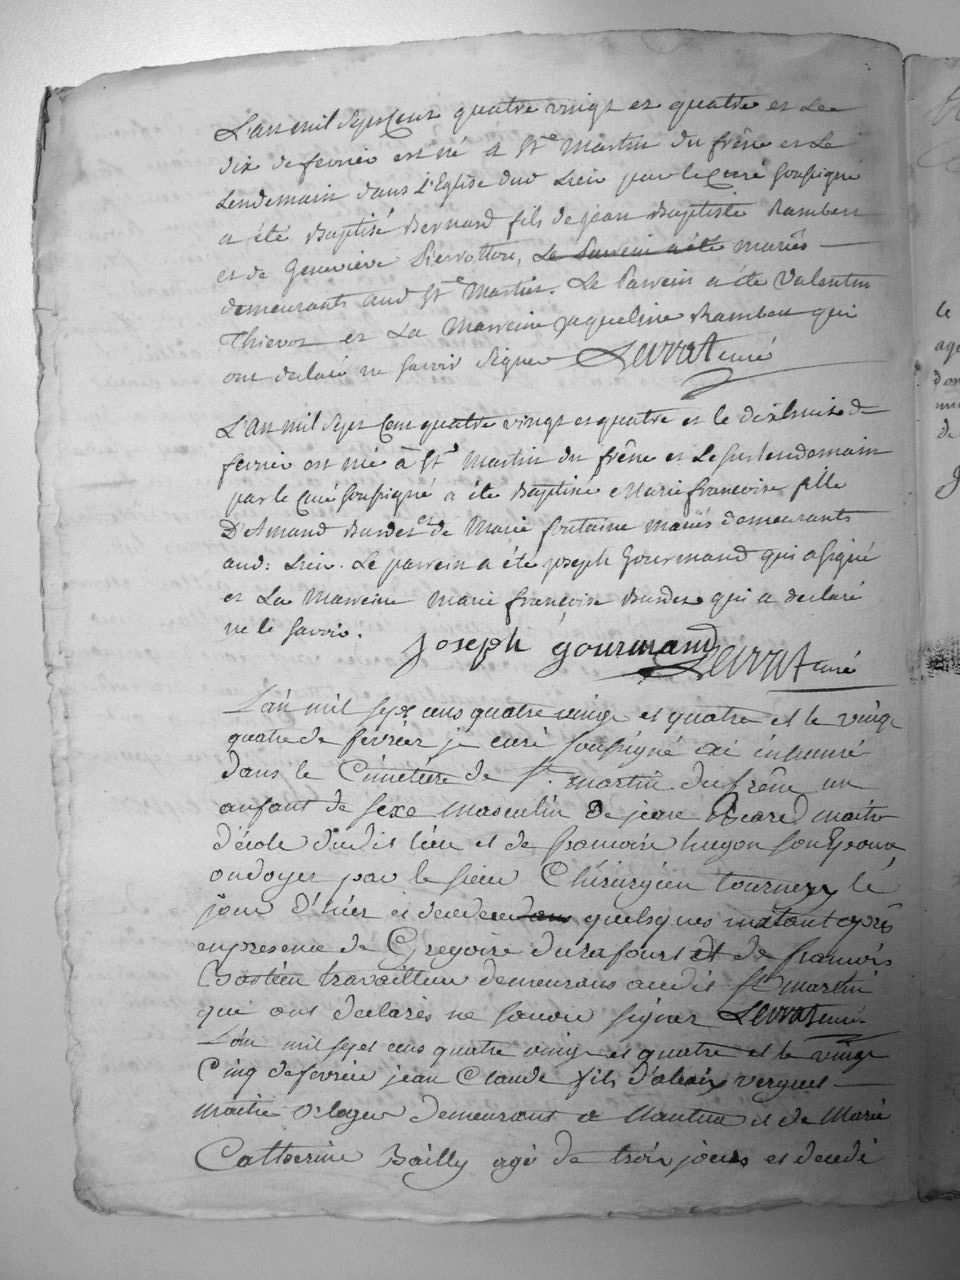 L'an mil sept Cent quatre vingt et quatre et Le
dix de fevrier est né a St Martin du frêne et Le
Lendemain dans L'Eglise dud Lieu par le Curé soussigné
a été Baptisé Bernard fils de jean Baptiste Rambert
et de Geneviève Pierrotton, Le Parrein a été mariés
demeurants aud St Martin. Le Parrein a été Valentin
Thievon et La Marreine jaqueline Rambert qui
ont declaré ne savoir signer Levrat curé
L'An mil Sept Cent quatre vingt et quatre et le dixhuit de
fevrier est née à St Martin du frêne et Le surlendemain
par le Curé soussigné a été Baptisée Marie francoise fille
D'Amand Burdet et de Marie fontaine mariés demeurants
aud: Lieu. Le parrein a été joseph Gourmand qui a signé
et La Marreine Marie françoise Burdet qui a declaré
ne le savoir. joseph gourmand Levrat curé
L'an mil sept cens quatre vingt et quatre et le vingt
quatre de février je curé soussigné ai inhumé
dans le Cimetière de St martin du frêne un
anfant de sexe masculin de jean Picard maitre
d'école dudit lieu et de francoise hugon son Epouse
ondoyer par le sieur Chirurgien tournery le
jour d'hier et decedé dans quelsques instant après
en presence de Gregoire durafourt et de francois
Bastien travailleur demeurans audit St martin
qui ont declarés ne savoir signer Levrat curé
L'an mil sept cens quatre vingt et quatre et le vingt
Cinq de fevrier jean Claude fils d'alexix verguet
Maitre orloger demeurant a Nantua et de Marie
Catherine Bailly agé de trois jours et decedé
le
de